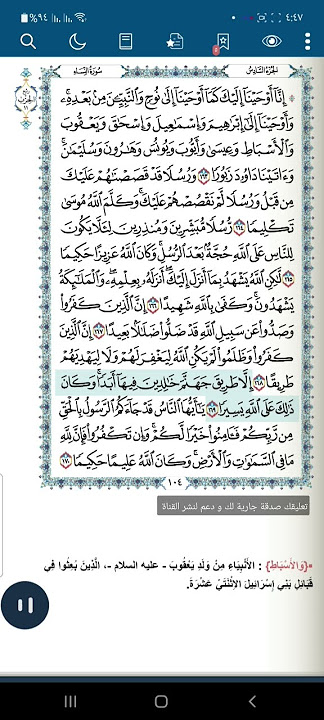 ٤:٤٧
٩٤%
الجزء السادس سورة النساء
۞ إِنَّا أَوْحَيْنَا إِلَيْكَ كَمَا أَوْحَيْنَا إِلَىٰ نُوحٍ وَالنَّبِيِّينَ مِن بَعْدِهِ ۚ
وَأَوْحَيْنَا إِلَىٰ إِبْرَاهِيمَ وَإِسْمَاعِيلَ وَإِسْحَاقَ وَيَعْقُوبَ
وَالْأَسْبَاطِ وَعِيسَىٰ وَأَيُّوبَ وَيُونُسَ وَهَارُونَ وَسُلَيْمَانَ ۚ
وَآتَيْنَا دَاوُودَ زَبُورًا ١٦٣ وَرُسُلًا قَدْ قَصَصْنَاهُمْ عَلَيْكَ
مِن قَبْلُ وَرُسُلًا لَّمْ نَقْصُصْهُمْ عَلَيْكَ ۚ وَكَلَّمَ اللَّهُ مُوسَىٰ
تَكْلِيمًا ١٦٤ رُّسُلًا مُّبَشِّرِينَ وَمُنذِرِينَ لِئَلَّا يَكُونَ
لِلنَّاسِ عَلَى اللَّهِ حُجَّةٌ بَعْدَ الرُّسُلِ ۚ وَكَانَ اللَّهُ عَزِيزًا حَكِيمًا
١٦٥ لَّٰكِنِ اللَّهُ يَشْهَدُ بِمَا أَنزَلَ إِلَيْكَ ۖ أَنزَلَهُ بِعِلْمِهِ ۖ وَالْمَلَائِكَةُ
يَشْهَدُونَ ۚ وَكَفَىٰ بِاللَّهِ شَهِيدًا ١٦٦ إِنَّ الَّذِينَ كَفَرُوا
وَصَدُّوا عَن سَبِيلِ اللَّهِ قَدْ ضَلُّوا ضَلَالًا بَعِيدًا ١٦٧ إِنَّ الَّذِينَ
كَفَرُوا وَظَلَمُوا لَمْ يَكُنِ اللَّهُ لِيَغْفِرَ لَهُمْ وَلَا لِيَهْدِيَهُمْ
طَرِيقًا ١٦٨ إِلَّا طَرِيقَ جَهَنَّمَ خَالِدِينَ فِيهَا أَبَدًا ۚ وَكَانَ
ذَٰلِكَ عَلَى اللَّهِ يَسِيرًا ١٦٩ يَا أَيُّهَا النَّاسُ قَدْ جَاءَكُمُ الرَّسُولُ بِالْحَقِّ
مِن رَّبِّكُمْ فَآمِنُوا خَيْرًا لَّكُمْ ۚ وَإِن تَكْفُرُوا فَإِنَّ لِلَّهِ
مَا فِي السَّمَاوَاتِ وَالْأَرْضِ ۚ وَكَانَ اللَّهُ عَلِيمًا حَكِيمًا ١٧٠
١٠٤
تعليقك صدقة جارية لك و دعم لنشر القناة
•{وَالأَسْبَاطِ} : الأَنْبِيَاءِ مِنْ وَلَدِ يَعْقُوبَ - عليه السلام -، الَّذِينَ بُعِثُوا فِي
قَبَائِلِ بَنِي إِسْرَائِيلَ الِاثْنَتَيْ عَشْرَةَ.